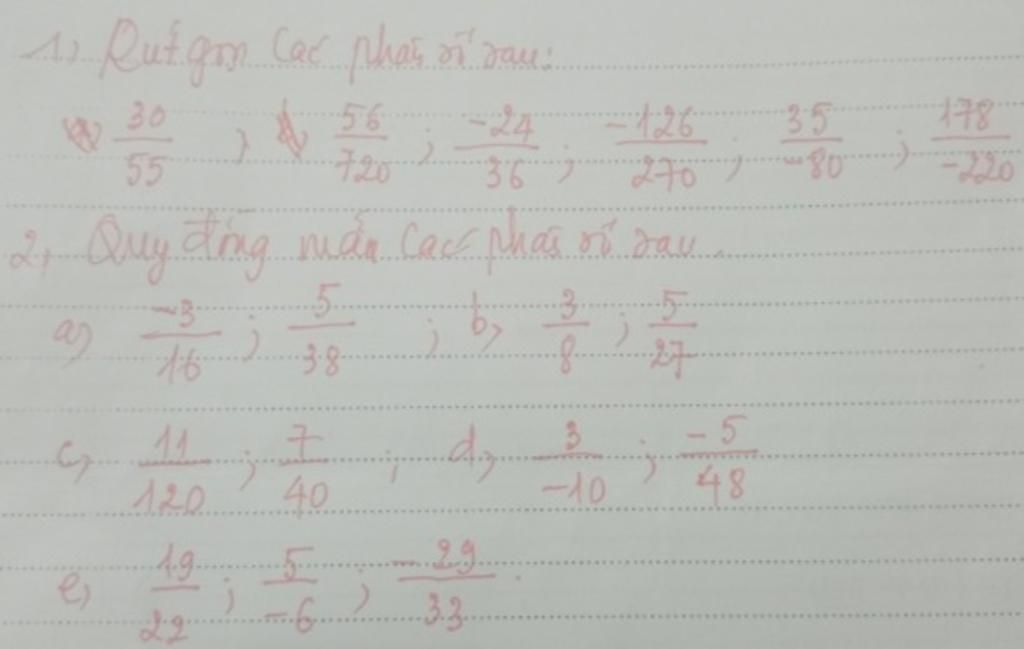 1, Rút gọn các phân số sau:
30/55 ; 56/720 ; -24/36 ; -126/270 ; 35/-80 ; 178/-220
2, Quy đồng mẫu các phân số sau.
a) -3/16 ; 5/38 ; b, 3/8 ; 5/27
c, 11/120 ; 7/40 ; d, 3/-10 ; -5/48
e, 19/22 ; 5/-6 ; -29/33 .